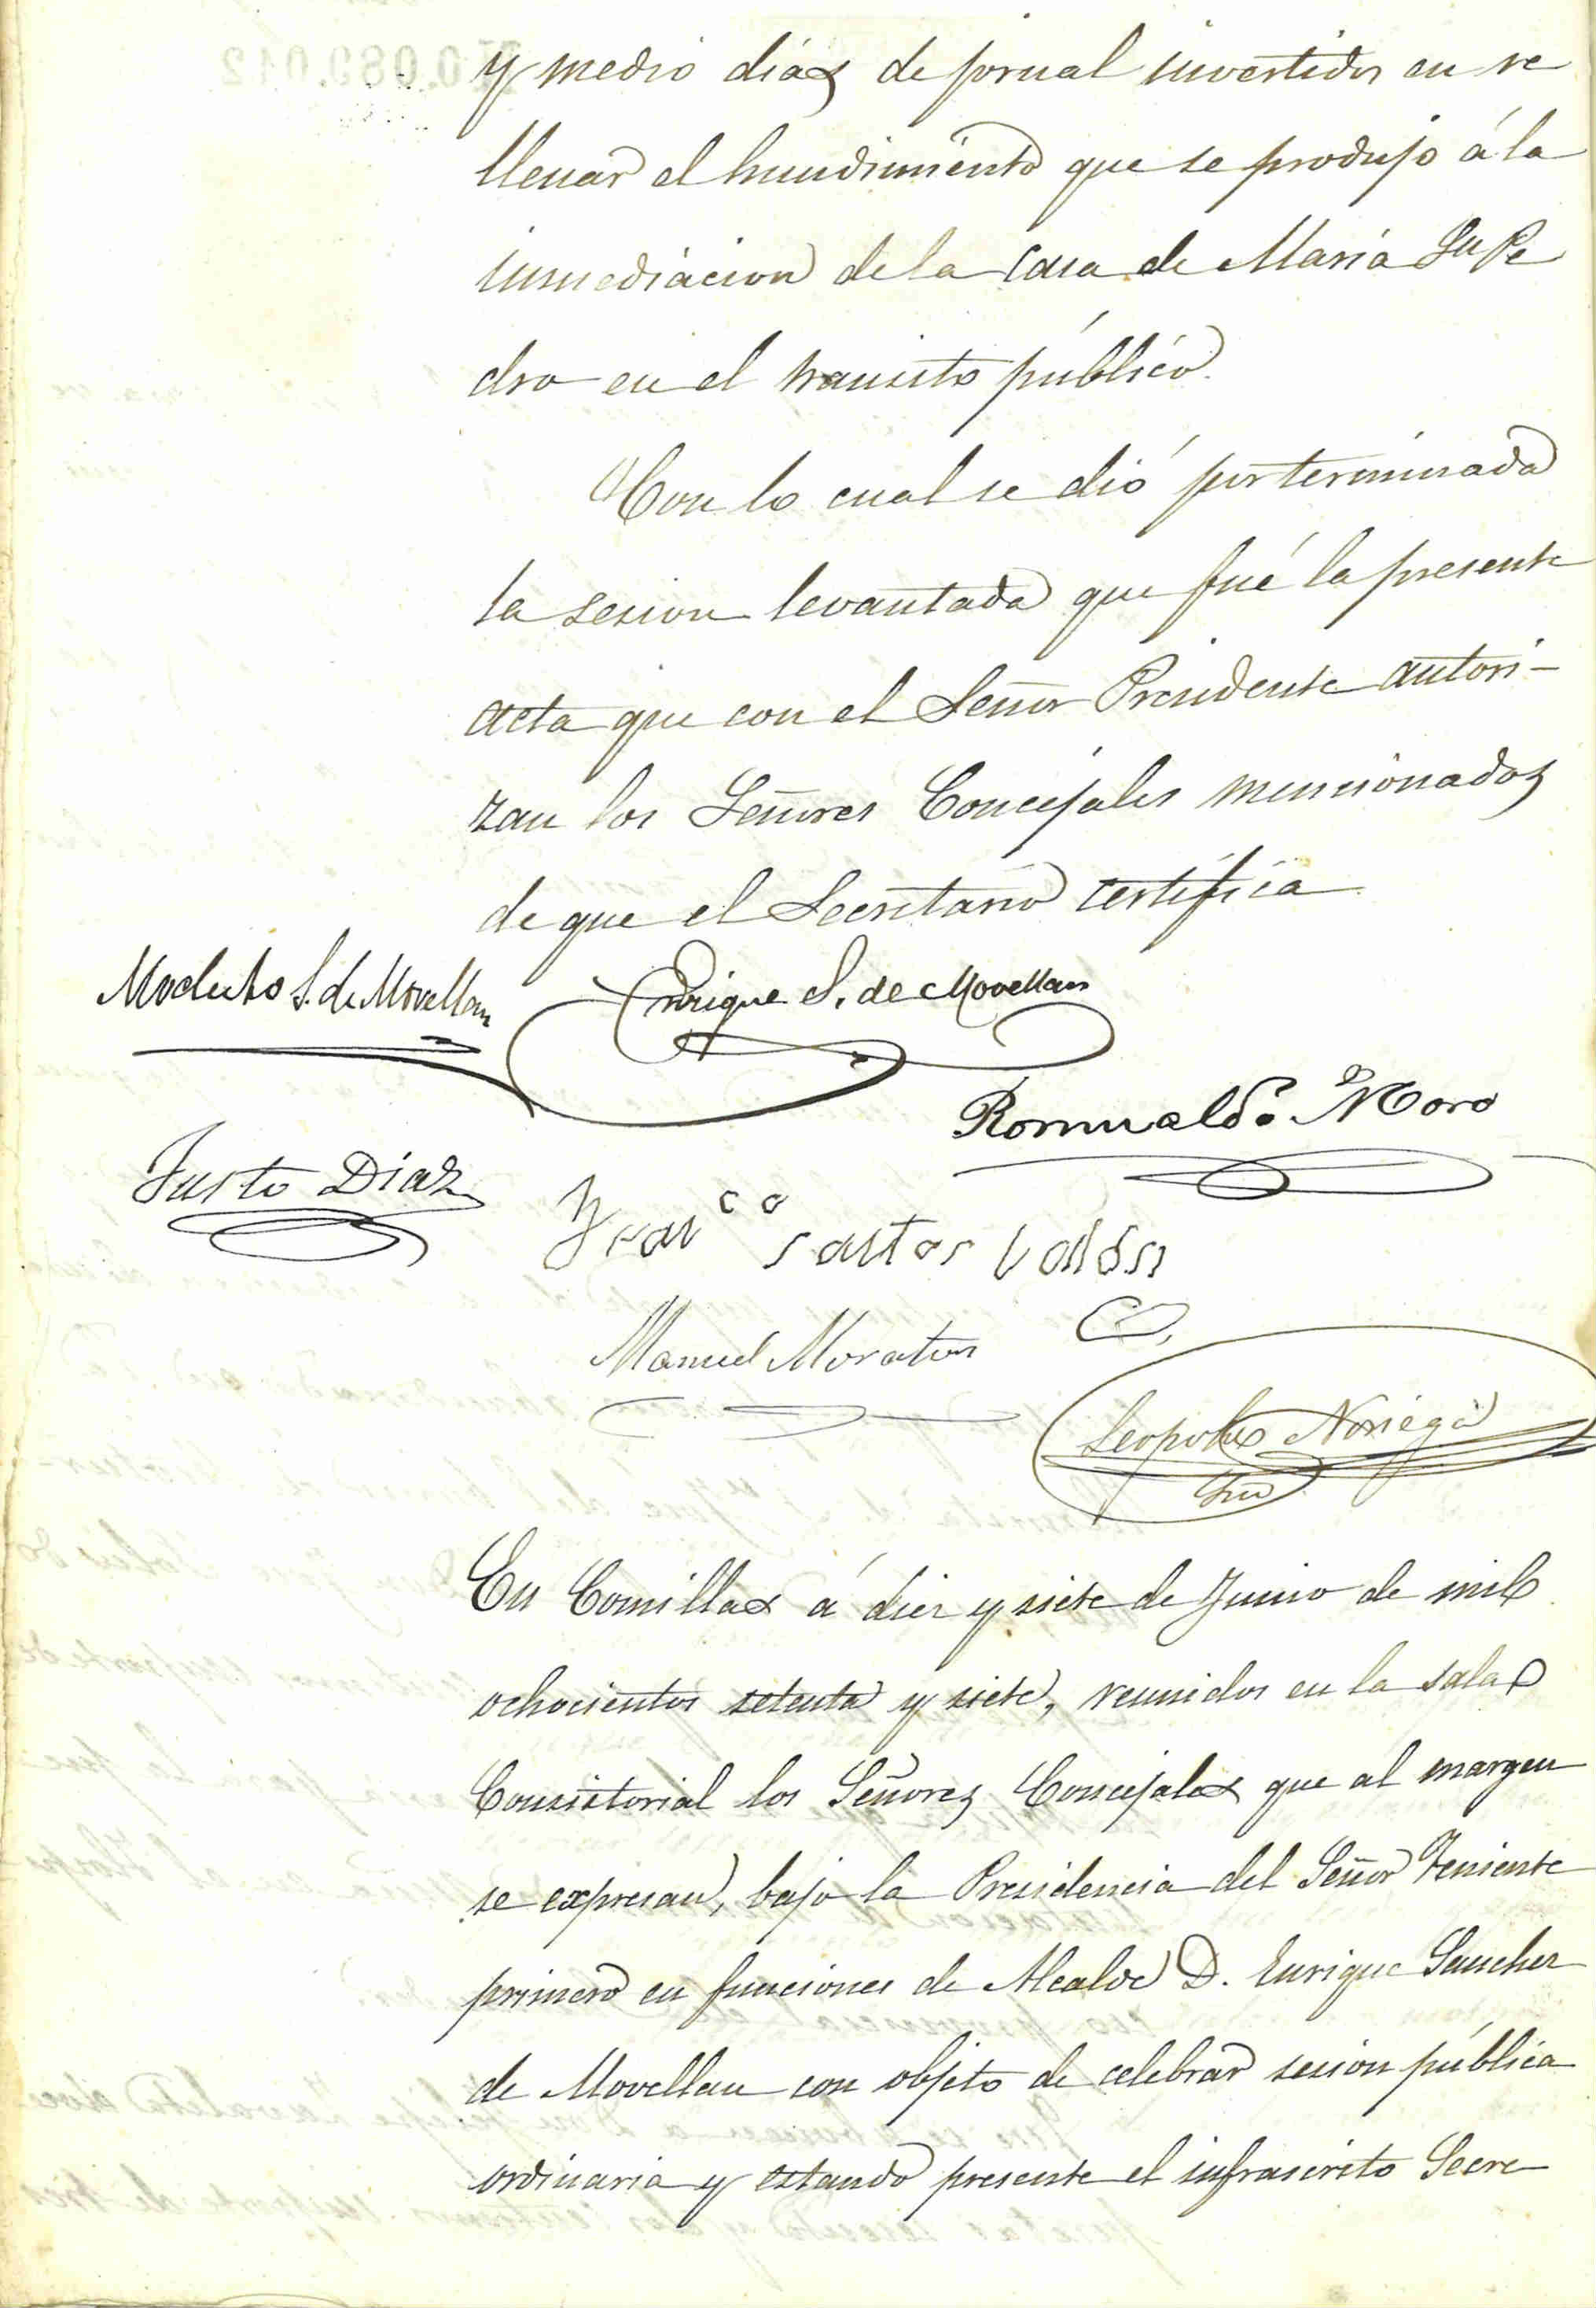 y medio días de jornal invertidos en re
llenar el hundimiento que se produjo á la
inmediacion de la casa de María
dro en el transito público.
Con lo cual se dió por terminada
la sesion levantada que fué la presente
acta que con el Señor Presidente autori-
zan los Señores Concejales mencionados
de que el Secretario certifica
Modesto S. de Movellan
Enrique S. de Movellan
Romualdo Moro
Justo Diaz
Franco Santos
Manuel
Leopoldo Noriega
Srio
En Comillas á diez y siete de Junio de mil
ochocientos setenta y siete, reunidos en la sala
Consistorial los Señores Concejales que al margen
se expresan, bajo la Presidencia del Señor Teniente
primero en funciones de Alcalde D. Enrique Sanchez
de Movellan con objeto de celebrar sesion pública
ordinaria y estando presente el infrascrito Secre